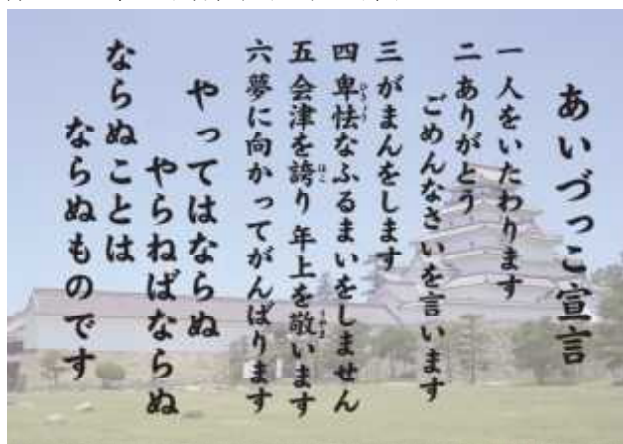 あいづっこ宣言
一 人をいたわります
二 ありがとう
ごめんなさいを言います
三 がまんをします
四 卑怯なふるまいをしません
五 会津を誇り 年上を敬います
六 夢に向かってがんばります
やってはならぬ
やらねばならぬ
ならぬことは
ならぬものです